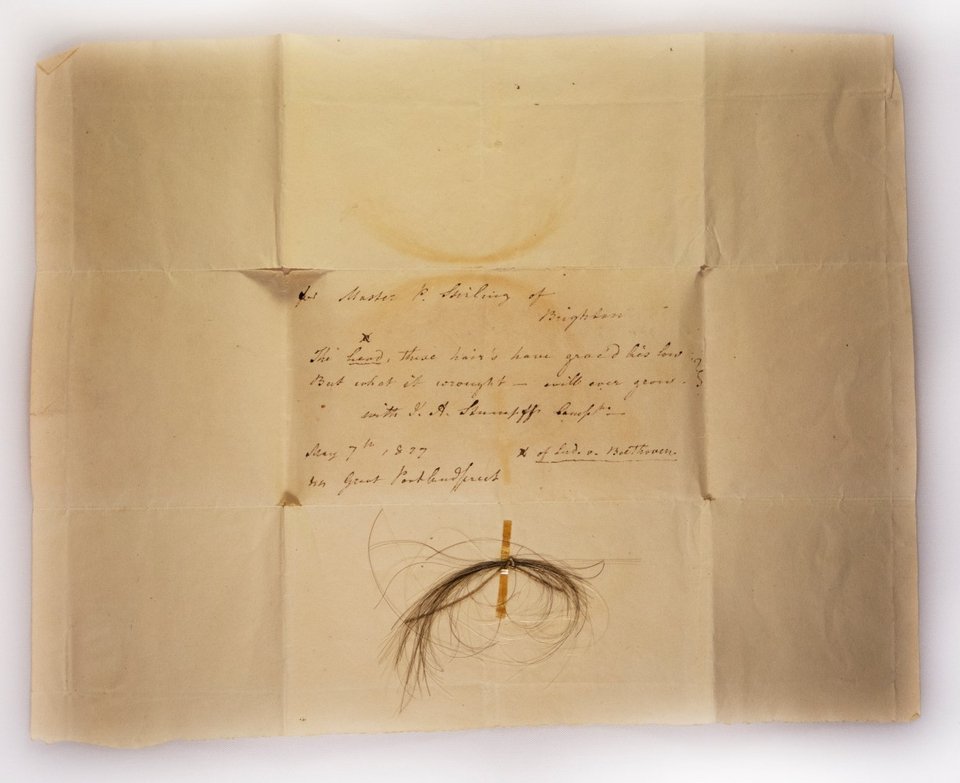 for Master P. Stirling of
Brighton
x
The head, these hair's have grac'd lies low
But what it wrought – will ever grow.
with J. A. Stumpff Compts
May 7th, 1827
Great Portlandstreet
x of Lud. v. Beethoven.